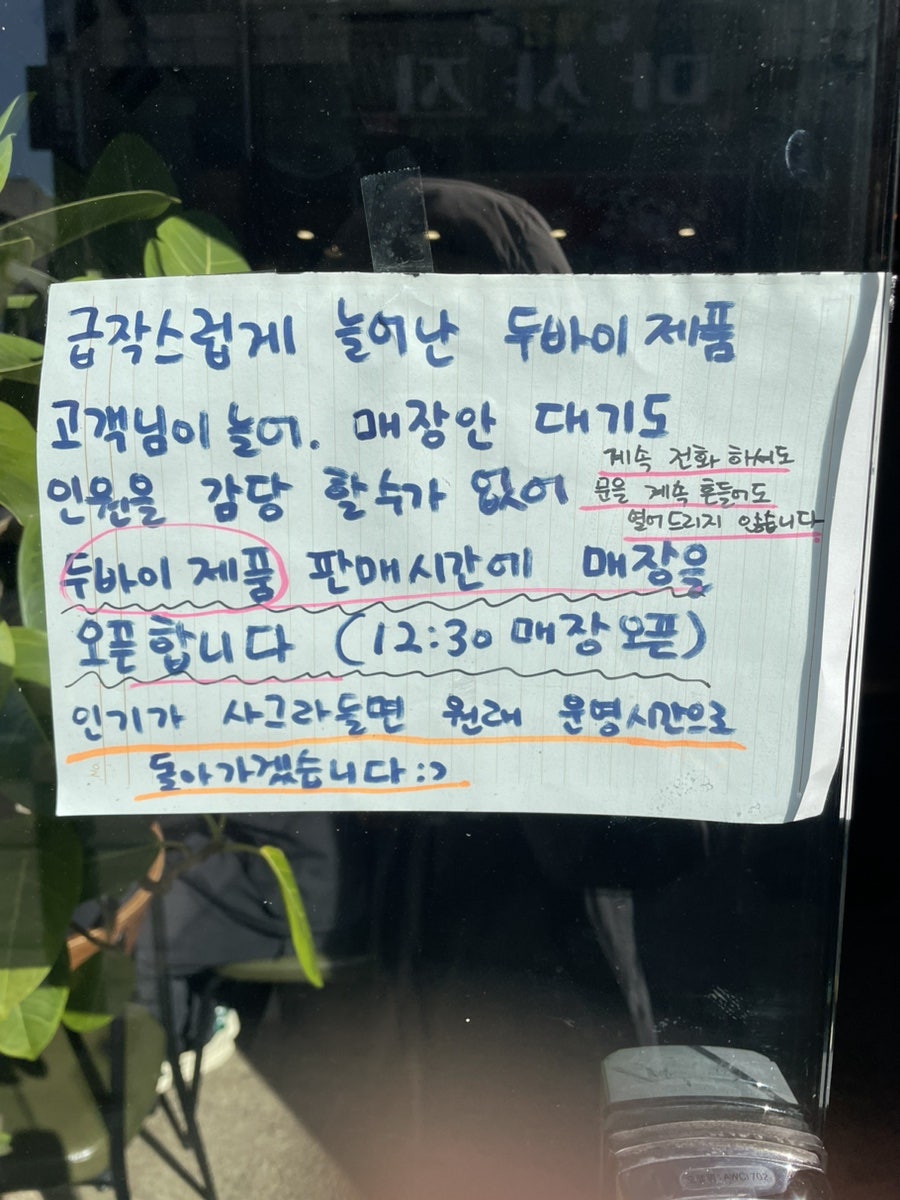 급작스럽게 늘어난 두바이 제품
고객님이 늘어. 매장안 대기도
인원을 감당 할수가 없어
계속 전화 하셔도
문을 계속 흔들어도
열어드리지 않습니다
두바이 제품 판매시간에 매장을
오픈합니다 (12:30 매장오픈)
인기가 사그라들면 원래 운영시간으로
돌아가겠습니다:)
마사지
AWCI 702